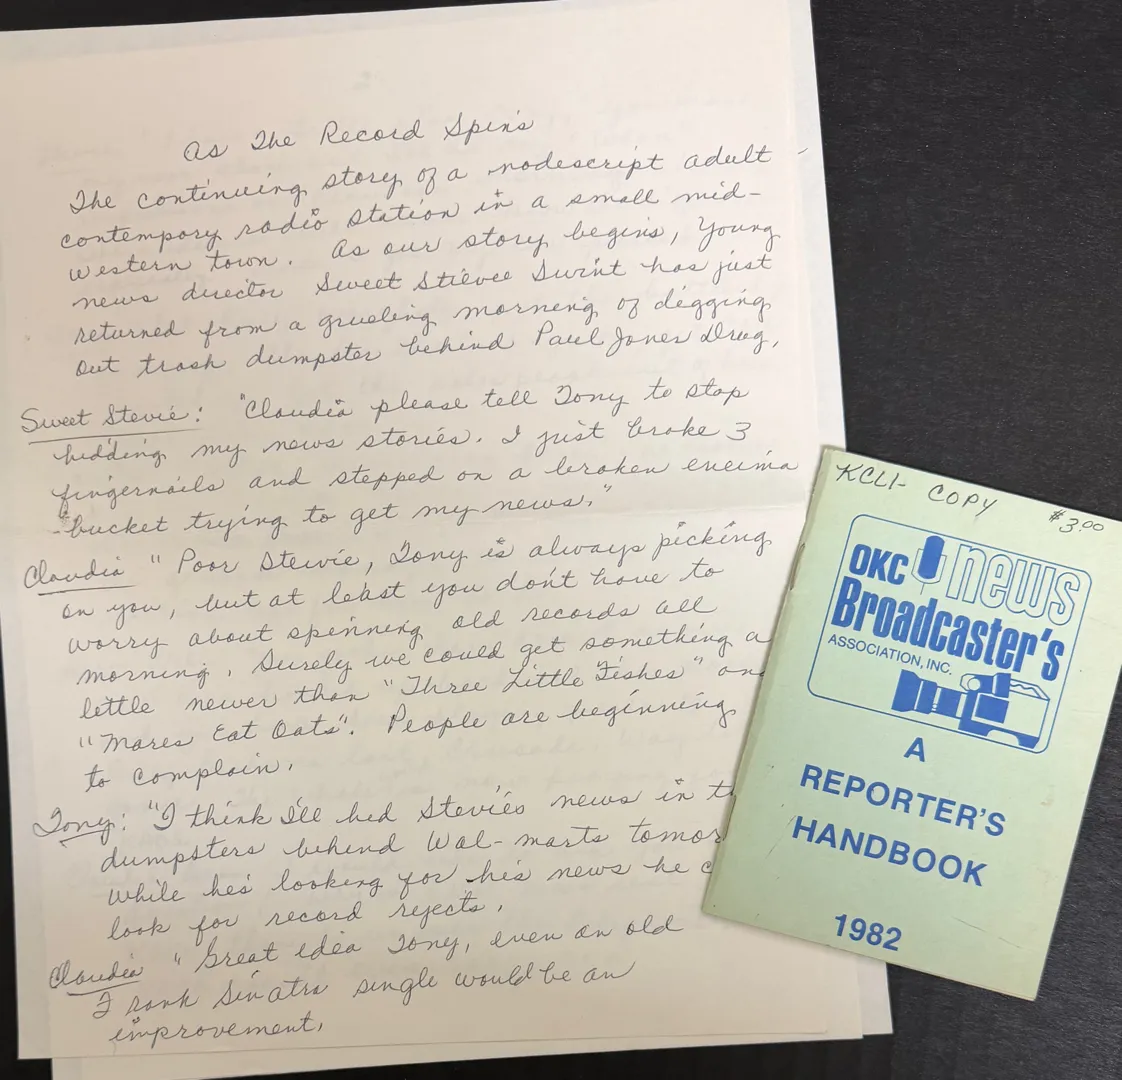 As The Record Spins
The continuing story of a nodescript adult
contempory radio station in a small mid-
western town. As our story begins, Young
news director Sweet Stievee Swint has just
returned from a grueling morning of digging
out trash dumpster behind Paul Jones Drug.
Sweet Stevie: "Claudia please tell Tony to stop
hidding my news stories. I just broke 3
fingernails and stepped on a broken eneima
bucket trying to get my news."
Claudia " Poor Stevie, Tony is always picking
on you, but at least you don't have to
worry about spinning old records all
morning. Surely we could get something a
little newer than "Three Little Fishes" and
"Mares Eat Oats". People are beginning
to complain.
Tony: "I think I'll hid Stevie's news in
dumpsters behind Wal-marts
while he's looking for his news he
look for record rejects.
Claudia "Great idea Tony, even an old
Frank Sinatra single would be an
improvement.
KCLI- COPY $3.00
OKC news
Broadcaster's
ASSOCIATION, INC.
A
REPORTER'S
HANDBOOK
1982